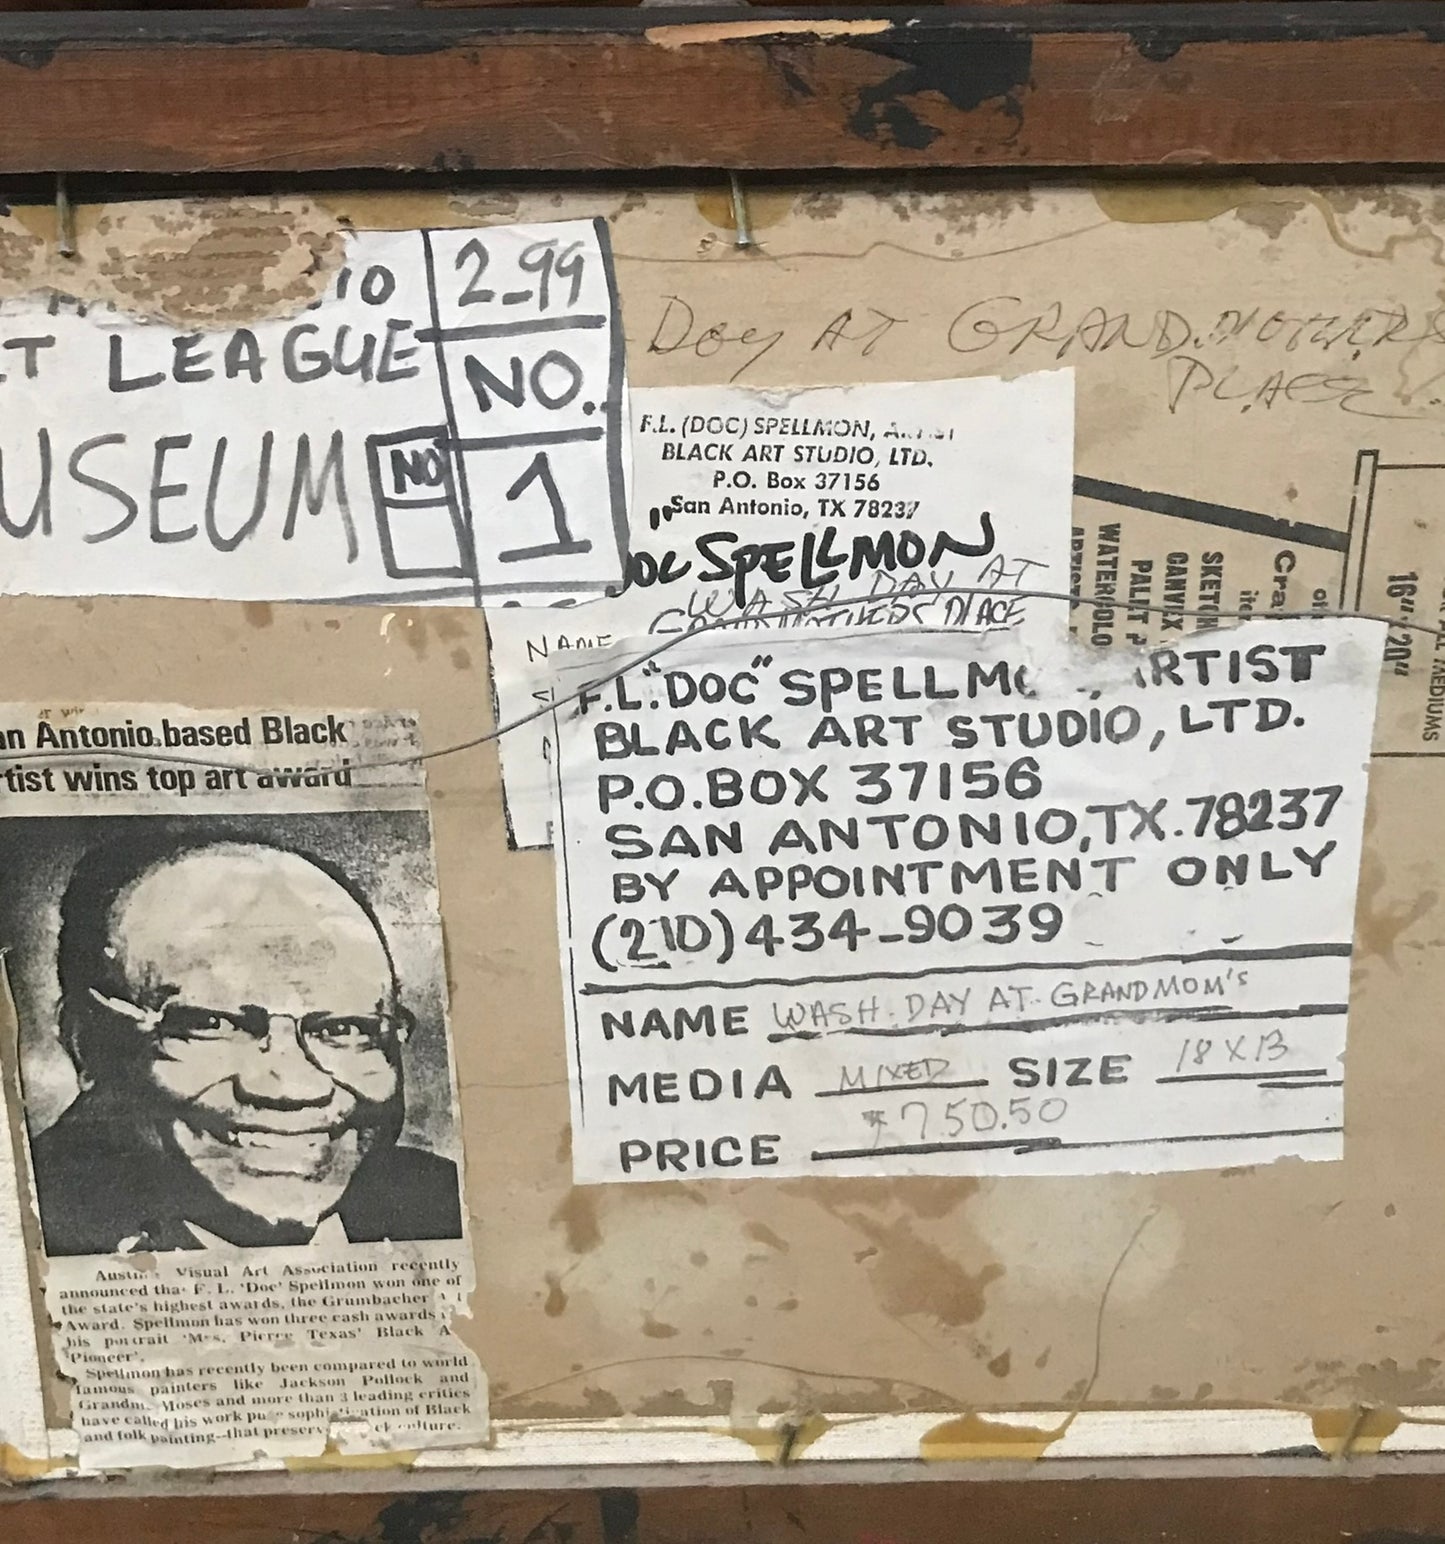 IO
T LEAGUE
USEUM
NO
2-99
NO.
1
DAY AT GRANDMOTHERS
PLACE
F.L. (DOC) SPELLMON,
BLACK ART STUDIO, LTD.
P.O. Box 37156
San Antonio, TX 78237
"DOC SPELLMON
WASH DAY AT
GRANDMOTHERS PLACE
NAME
SKETCH
CANVIX
WATERCOLO
16" 20"
MEDIUMS
F.L. "DOC" SPELLMO ARTIST
BLACK ART STUDIO, LTD.
P.O. BOX 37156
SAN ANTONIO, TX. 78237
BY APPOINTMENT ONLY
(210) 434-9039
NAME WASH. DAY AT. GRANDMOM'S
MEDIA MIXED SIZE 18 X 13
$750.50
PRICE
an Antonio based Black
rtist wins top art award
Austin Visual Art Association recently
announced that F. L. 'Doc' Spellmon won one of
the state's highest awards, the Grumbacher
Award. Spellmon has won three cash awards
his portrait 'Mrs. Pierce Texas' Black A
Pioneer'.
Spellmon has recently been compared to world
famous painters like Jackson Pollock and
Grandma Moses and more than 3 leading critics
have called his work pure sophistication of Black
and folk painting--that preserv culture.